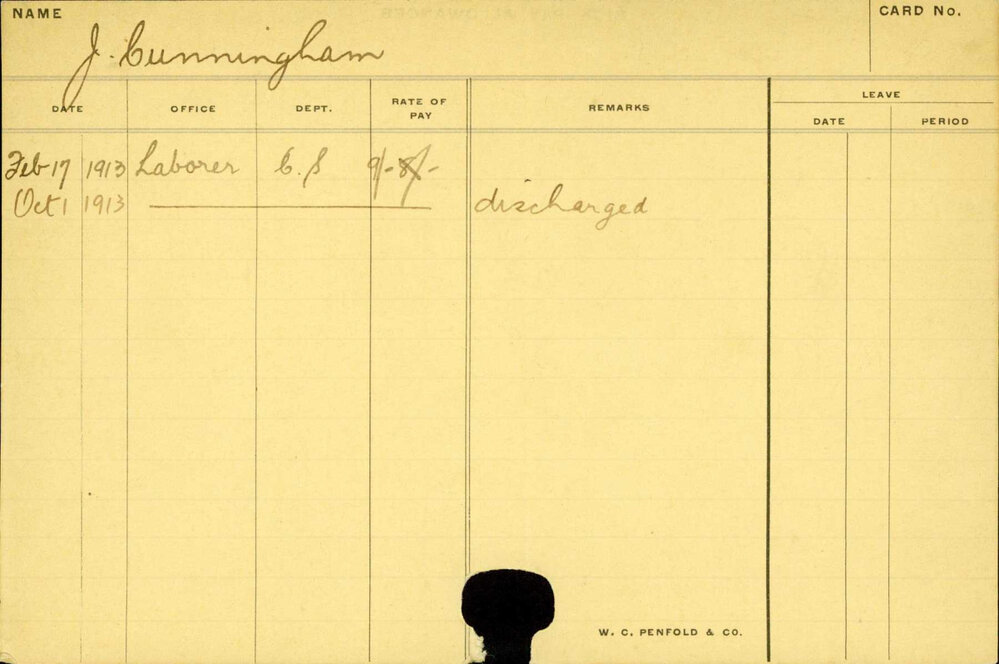 NAME
CARD No.
J. Cunningham
DATE OFFICE DEPT. RATE OF PAY REMARKS LEAVE
DATE PERIOD
Feb 17 1913 Laborer C.S 9/- 8/-
Oct 1 1913 discharged
W. C. PENFOLD & CO.